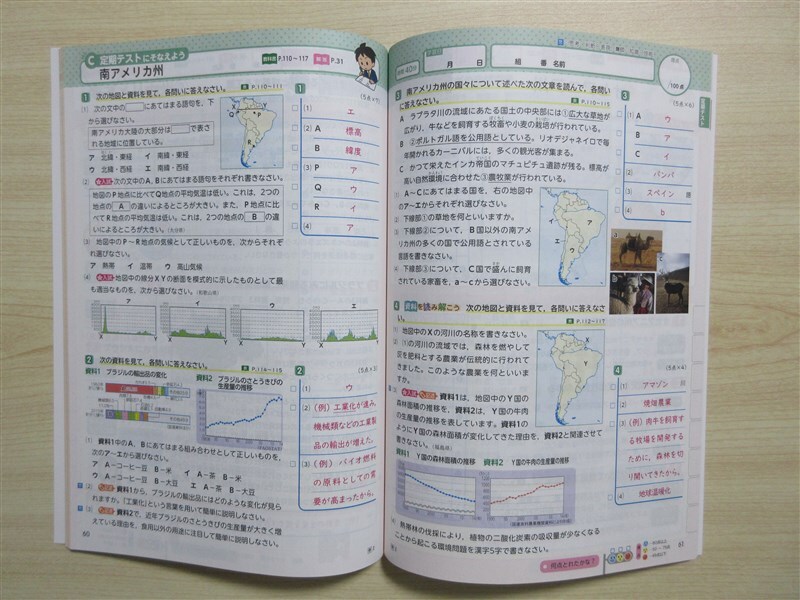 C 定期テストにそなえよう
南アメリカ州
資料書 P.110～117
P.31
1 次の地図と資料を見て，各問いに答えなさい。
P.110～111
(1) 次の文中の にあてはまる語句を，下
から選びなさい。
南アメリカ大陸の大部分は で表さ
れる地域に位置している。
ア 北緯・東経 イ 南緯・東経
ウ 北緯・西経 エ 南緯・西経
(2) 次の文中のA，Bにあてはまる語句をそれぞれ書きなさい。
地図のP地点に比べてQ地点の平均気温は低い。これは，2つの
地点の A の違いによるところが大きい。また，P地点に比
べてR地点の平均気温は低い。これは，2つの地点の B の違
いによるところが大きい。
(3) 地図中のP～R地点の気候として正しいものを，次からそれぞ
れ選びなさい。
ア 熱帯 イ 温帯 ウ 高山気候
(4) 地図中の線分XYの断面を模式的に示したものとして最
も適当なものを，次から選びなさい。
ア イ ウ エ
X Y X Y X Y X Y
1
(5点×7)
(1) エ
(2) A 標高
B 緯度
(3) P ア
Q ウ
R イ
(4) ア
2 次の資料を見て，各問いに答えなさい。
P.114～115
資料1 ブラジルの輸出品の変化
資料2 ブラジルのさとうきびの
生産量の推移
(1) 資料1中のA，Bにあてはまる組み合わせとして正しいものを，
次のア～エから選びなさい。
ア A－コーヒー豆 B－米 イ A－茶 B－米
ウ A－コーヒー豆 B－大豆 エ A－茶 B－大豆
(2) 資料1から，ブラジルの輸出品にはどのような変化が見ら
れますか。「工業化」という言葉を用いて簡単に説明しなさい。
(3) 資料2で，近年ブラジルのさとうきびの生産量が大きく増
えている理由を，食用以外の用途に注目して簡単に説明しなさい。
2
(5点×3)
(1) ウ
(2) (例)工業化が進み，
機械類などの工業製
品の輸出が増えた。
(3) (例)バイオ燃料
の原料としての需
要が高まったから。
60
月 日
組 番 名前
/100点
3 南アメリカ州の国々について述べた次の文章を読んで，各問い
に答えなさい。
P.110～115
A ラプラタ川の流域にあたる国土の中央部には①広大な草地が
広がり，牛などを飼育する牧畜や小麦の栽培が行われている。
B ②ポルトガル語を公用語としている。リオデジャネイロで毎
年開かれるカーニバルには，多くの観光客が集まる。
C かつて栄えたインカ帝国のマチュピチュ遺跡が残る。標高が
高い自然環境に合わせた③農牧業が行われている。
(1) A～Cにあてはまる国を，右の地図中
のア～エからそれぞれ選びなさい。
(2) 下線部①の草地を何といいますか。
(3) 下線部②について，B国以外の南アメ
リカ州の多くの国で公用語とされている
言語を書きなさい。
(4) 下線部③について，C国で盛んに飼育
されている家畜を，a～cから選びなさい。
3
(5点×6)
(1) A ウ
B ア
C イ
(2) パンパ
(3) スペイン 語
(4) b
4 資料を読み解こう 次の地図と資料を見て，各問いに答えなさ
い。
P.112～117
(1) 地図中のXの河川の名称を書きなさい。
(2) (1)の河川の流域では，森林を燃やして
灰を肥料とする農業が伝統的に行われて
きました。このような農業を何といいま
すか。
(3) 資料1は，地図中のY国の
森林面積の推移を，資料2は，Y国の牛肉
の生産量の推移を表しています。資料1の
ようにY国の森林面積が変化してきた理由を，資料2と関連させて
書きなさい。
資料1 Y国の森林面積の推移
資料2 Y国の牛肉の生産量の推移
(4) 熱帯林の伐採により，植物の二酸化炭素の吸収量が少なくなる
ことから起こる環境問題を漢字5字で書きなさい。
4
(5点×4)
(1) アマゾン 川
(2) 焼畑農業
(3) (例)肉牛を飼育す
る牧場を開発する
ために，森林を切
り開いてきたから。
(4) 地球温暖化
何点とれたかな？
61